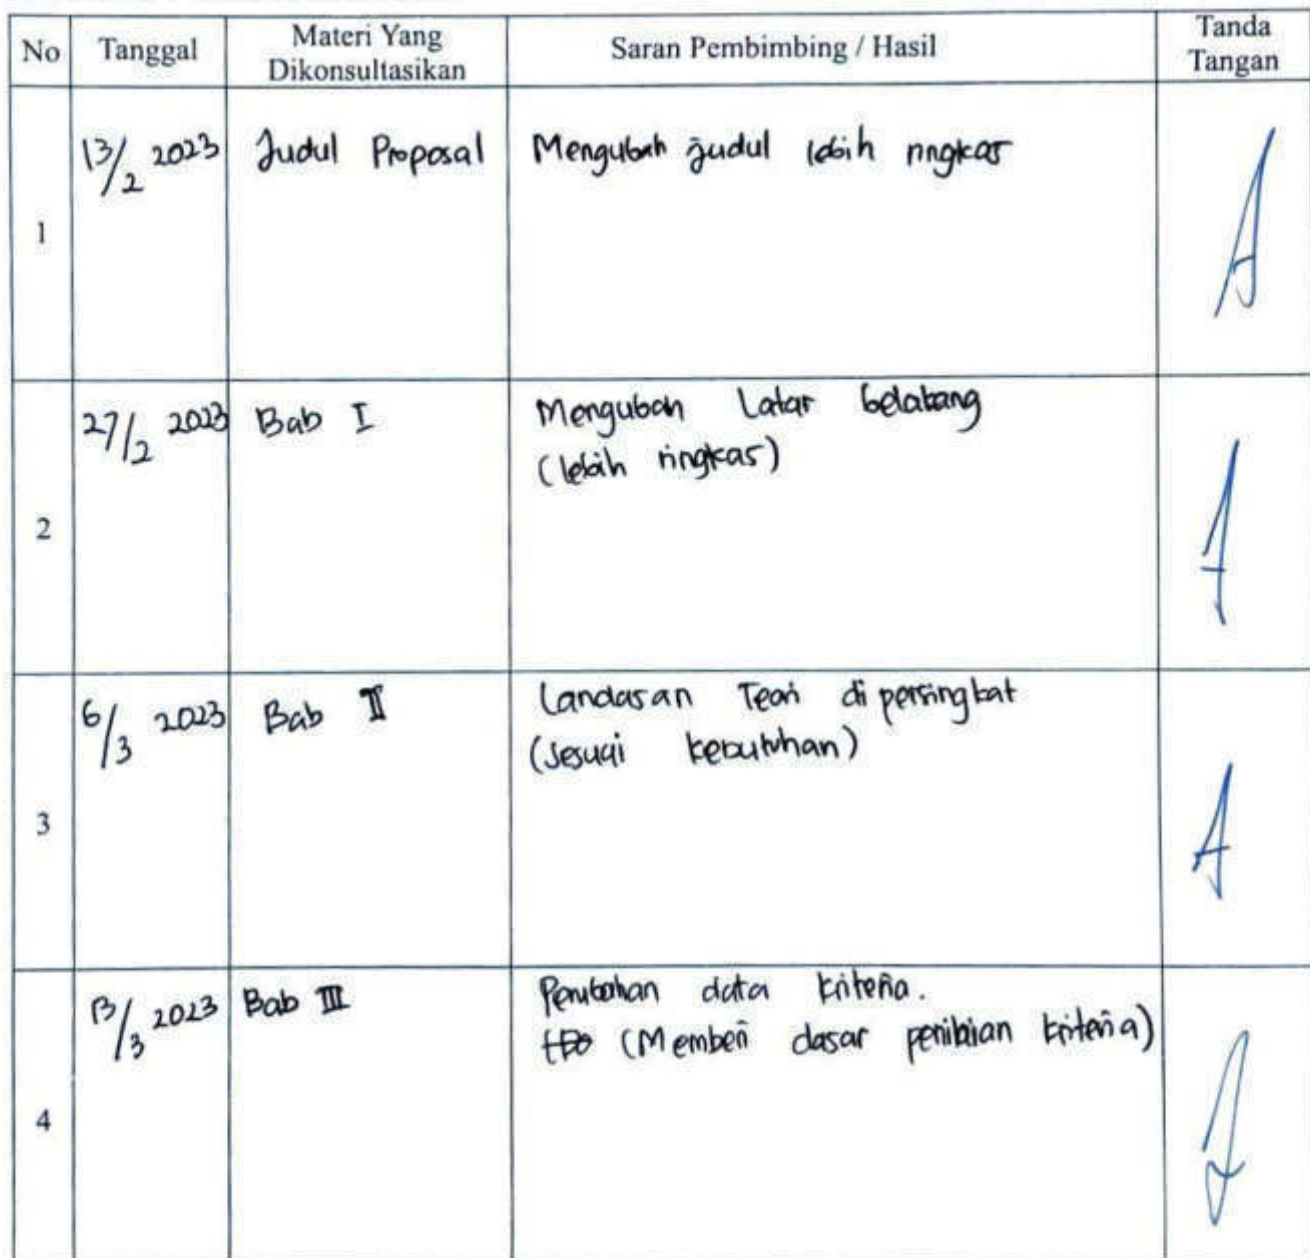 No Tanggal Materi Yang Dikonsultasikan Saran Pembimbing / Hasil Tanda Tangan
1 13/2 2023 Judul Proposal Mengubah judul lebih ringkas
2 27/2 2023 Bab I Mengubah Latar belakang
(lebih ringkas)
3 6/3 2023 Bab II Landasan Teori di persingkat
(sesuai kebutuhan)
4 13/3 2023 Bab III Perubahan data kriteria.
(Memberi dasar penilaian kriteria)